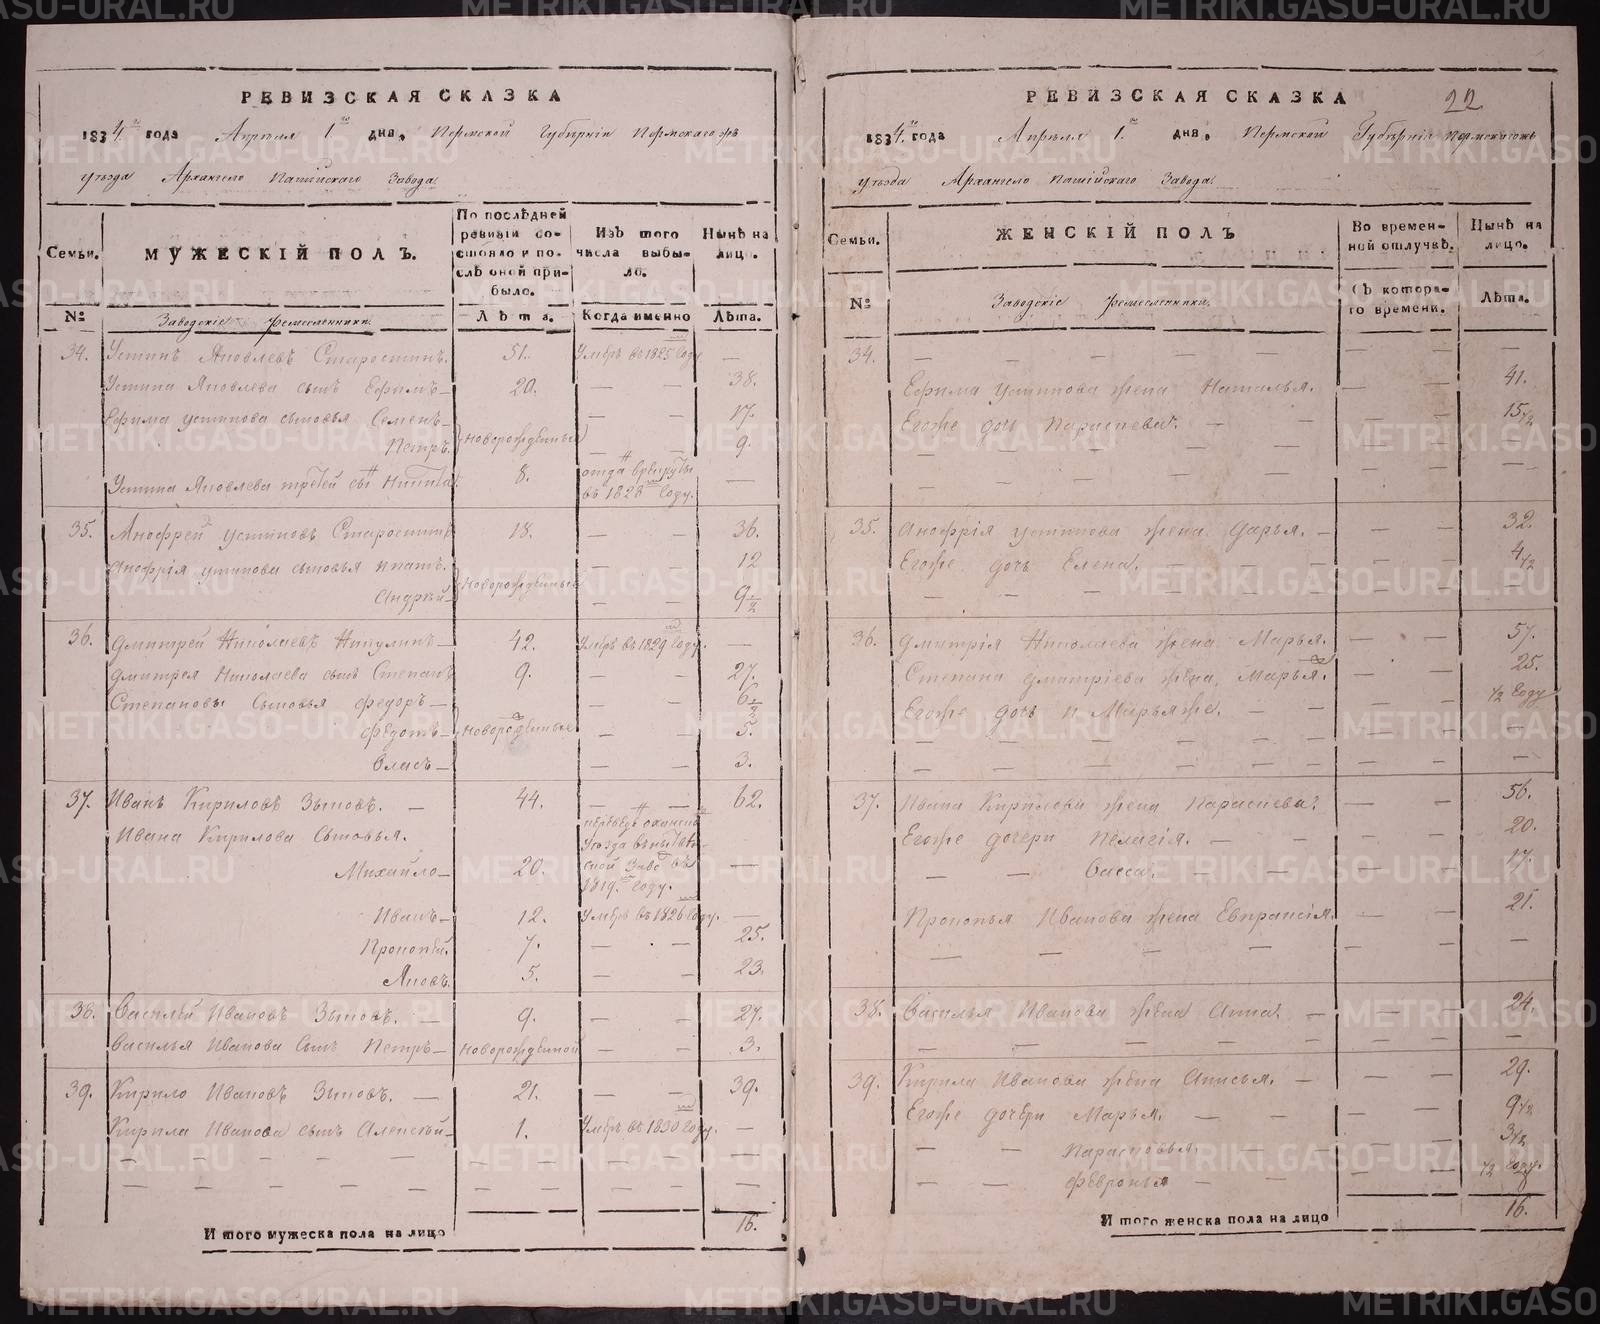 РЕВИЗСКАЯ СКАЗКА
1834.го года Апреля 1.го дня. Пермской Губерніи Пермскагожъ
уѣзда Архангело Пашійскаго Завода.
Семьи.
МУЖЕСКІЙ ПОЛЪ.
По послѣдней ревизіи состояло и послѣ оной прибыло.
Изъ того числа выбыло.
Нынѣ на лицо.
№
Заводскіе ремесленники.
Лѣта.
Когда именно
Лѣта.
34. Устинъ Яковлевъ Старостинъ. 51. Умеръ въ 1825 году —
Устина Яковлева сынъ Ефимъ — 20. — — 38.
Ефима устинова сыновья Семенъ — новорожденные — — 17.
Петръ. — — 9.
Устина Яковлева третей сынъ Никита 8. отдан в рекруты въ 1828 году. —
35. Анофрей устиновъ Старостинъ 18. — — 36.
Анофрія устинова сыновья Игнатъ. новорожденные — — 12
Андрей — — — 9 1/2
36. Дмитрей Николаевъ Никулинъ — 42. Умеръ въ 1829 году. —
Дмитрея Николаева сынъ Степанъ 9. — — 27.
Степановы Сыновья Федоръ — новорожденные — — 6 1/2
Федотъ — — — 5.
Власъ — — — 3.
37. Иванъ Кириловъ Зыковъ. — 44. — — 62.
Ивана Кирилова Сыновья.
Михайло — 20. 1819. году. —
Иванъ — 12. Умеръ въ 1826 году. —
Прокопей. 7. — — 25.
Яковъ. 5. — — 23.
38. Василей Ивановъ Зыковъ. — 9. — — 27.
Василья Иванова Сынъ Петръ — новорожденной — — 3.
39. Кирило Ивановъ Зыковъ. — 21. — — 39.
Кирила Иванова сынъ Алексей — 1. Умеръ въ 1830 году. —
Итого мужеска пола на лицо 16.
РЕВИЗСКАЯ СКАЗКА 22
1834.го года Апреля 1.го дня. Пермской Губерніи Пермскагожъ
уѣзда Архангело Пашійскаго Завода.
Семьи.
ЖЕНСКІЙ ПОЛЪ
Во временной отлучкѣ.
Нынѣ на лицо.
№
Заводскіе ремесленники.
Съ котораго времени.
Лѣта.
34. — — — — — — — — —
Ефима устинова жена Наталья. — — 41.
Егоже дочь Параскева. — — — 15 1/2
35. Анофрія устинова жена Дарья. — — — 32.
Егоже дочь Елена. — — — — 4 1/2
36. Дмитрія Николаева жена Марья. — — 57.
Степана Дмитріева жена Марья. — — 25.
Егоже дочь и Марья же. — — — — 1/2 году
37. Ивана Кирилова жена Параскева. — — 56.
Егоже дочери Пелагія. — — — — 20.
— — Васса. — — — — 17.
Прокопья Иванова жена Евпраксія. — — 21.
38. Василья Иванова жена Анна. — — — 24.
39. Кирила Иванова жена Анисья. — — — 29.
Егоже дочери Марья. — — — — 9 1/2
— — Парасковья. — — — 3 1/2
— — Февронья — — — — 1/2 году.
Итого женска пола на лицо 16.
METRIKI.GASO-URAL.RU